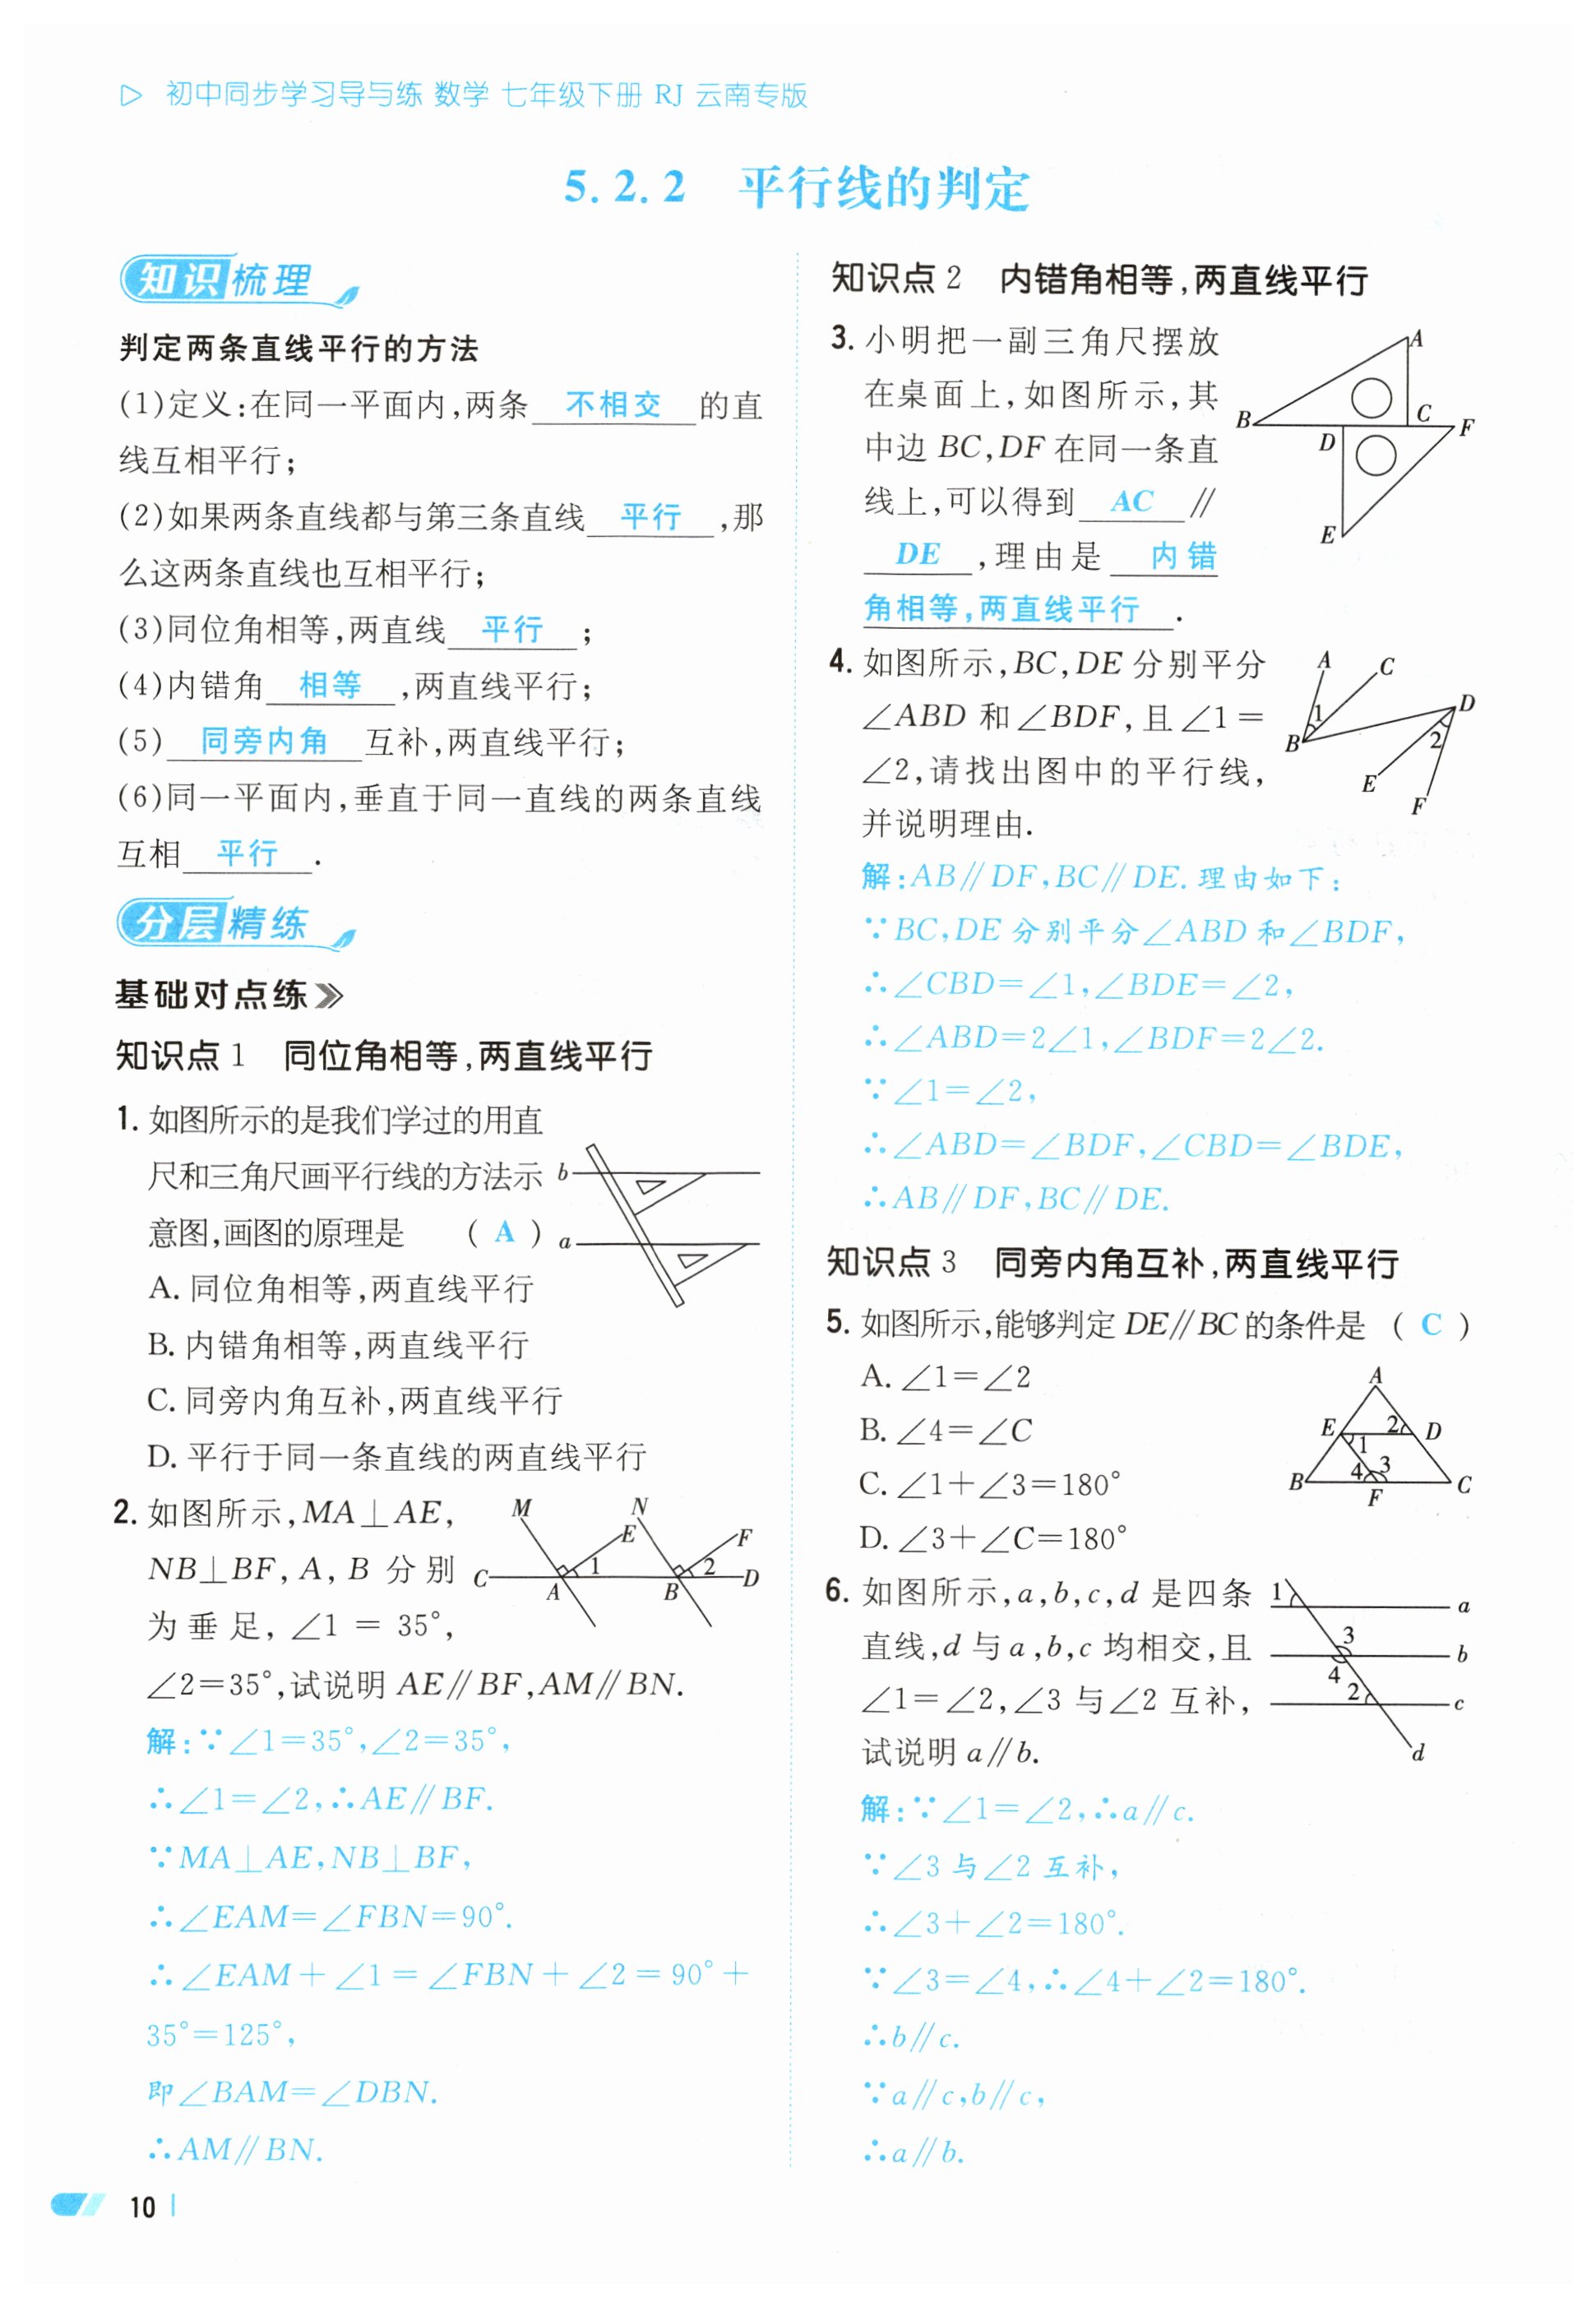 初中同步学习导与练 数学 七年级下册 RJ 云南专版
5.2.2 平行线的判定
知识梳理
判定两条直线平行的方法
(1)定义:在同一平面内,两条 不相交 的直
线互相平行;
(2)如果两条直线都与第三条直线 平行 ,那
么这两条直线也互相平行;
(3)同位角相等,两直线 平行 ;
(4)内错角 相等 ,两直线平行;
(5) 同旁内角 互补,两直线平行;
(6)同一平面内,垂直于同一直线的两条直线
互相 平行 .
分层精练
基础对点练
知识点1 同位角相等,两直线平行
1. 如图所示的是我们学过的用直
尺和三角尺画平行线的方法示
意图,画图的原理是 ( A )
b
a
A. 同位角相等,两直线平行
B. 内错角相等,两直线平行
C. 同旁内角互补,两直线平行
D. 平行于同一条直线的两直线平行
2. 如图所示,MA⊥AE,
NB⊥BF,A,B 分别
为垂足,∠1=35°,
∠2=35°,试说明 AE∥BF,AM∥BN.
M N
E F
C A 1 B 2 D
解:∵∠1=35°,∠2=35°,
∴∠1=∠2,∴AE∥BF.
∵MA⊥AE,NB⊥BF,
∴∠EAM=∠FBN=90°.
∴∠EAM+∠1=∠FBN+∠2=90°+
35°=125°,
即∠BAM=∠DBN.
∴AM∥BN.
知识点2 内错角相等,两直线平行
3. 小明把一副三角尺摆放
在桌面上,如图所示,其
中边 BC,DF 在同一条直
线上,可以得到 AC ∥
DE ,理由是 内错
角相等,两直线平行 .
A
B C F
D
E
4. 如图所示,BC,DE 分别平分
∠ABD 和∠BDF,且∠1=
∠2,请找出图中的平行线,
并说明理由.
A C
D
1
B 2
E
F
解:AB∥DF,BC∥DE.理由如下:
∵BC,DE 分别平分∠ABD 和∠BDF,
∴∠CBD=∠1,∠BDE=∠2,
∴∠ABD=2∠1,∠BDF=2∠2.
∵∠1=∠2,
∴∠ABD=∠BDF,∠CBD=∠BDE,
∴AB∥DF,BC∥DE.
知识点3 同旁内角互补,两直线平行
5. 如图所示,能够判定 DE∥BC 的条件是 ( C )
A. ∠1=∠2
B. ∠4=∠C
C. ∠1+∠3=180°
D. ∠3+∠C=180°
A
E 2 D
1
4 3
B F C
6. 如图所示,a,b,c,d 是四条
直线,d 与 a,b,c 均相交,且
∠1=∠2,∠3 与∠2 互补,
试说明 a∥b.
1 a
3
b
4
2 c
d
解:∵∠1=∠2,∴a∥c.
∵∠3与∠2互补,
∴∠3+∠2=180°.
∵∠3=∠4,∴∠4+∠2=180°.
∴b∥c.
∵a∥c,b∥c,
∴a∥b.
10